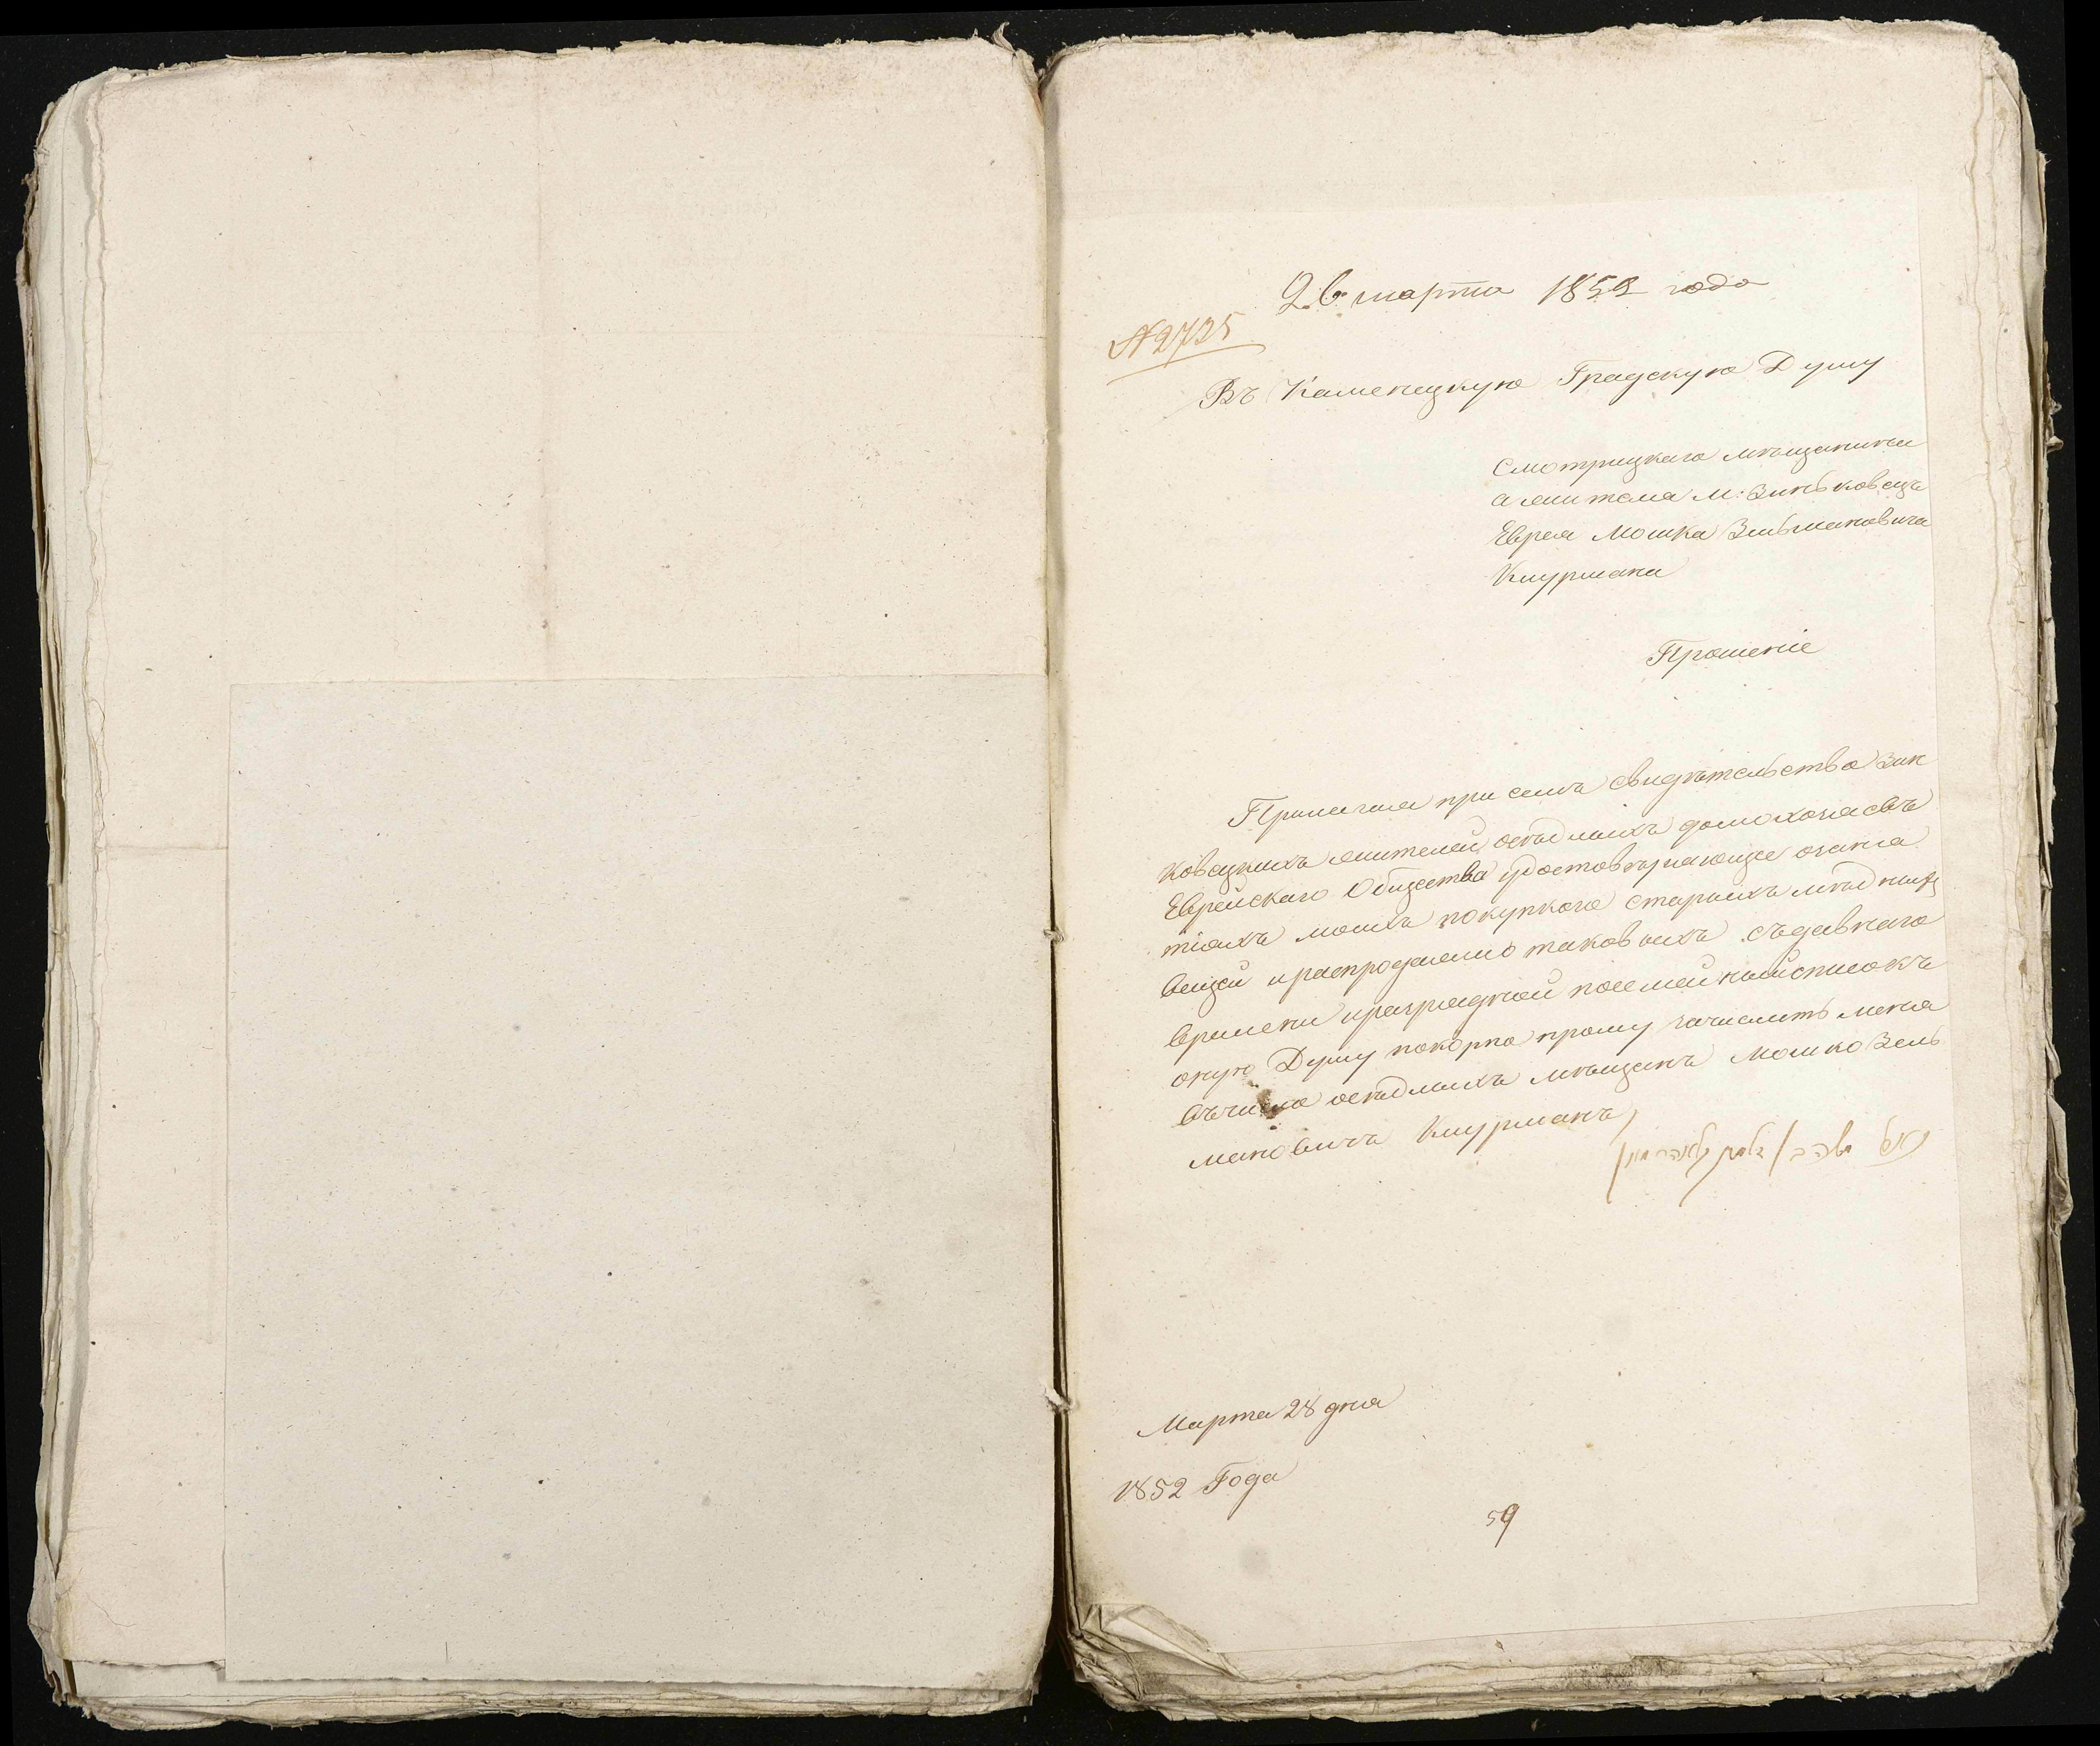 26 марта 1852 года
№ 2725
Въ Каменецкую Градскую Думу
Смотрицкаго мѣщанина
а жителя м: Зиньковецъ
Еврея Мошка Зельмановича
Клурмана
Прошеніе
Прилагая при семъ свидѣтельство Зин
ковецкихъ жителей осѣдлыхъ домохозяевъ
Еврейскаго Общества удостовѣряющее о заня
тіяхъ моихъ покупкою старыхъ мѣдныхъ
вещей и распродажею таковыхъ съ давнаго
времени и разрядной посемейный списокъ
оную Думу покорно прошу зачислить меня
въ число осѣдлыхъ мѣщанъ Мошко Зель
мановичъ Клурманъ
Марта 28 дня
1852 Года
59